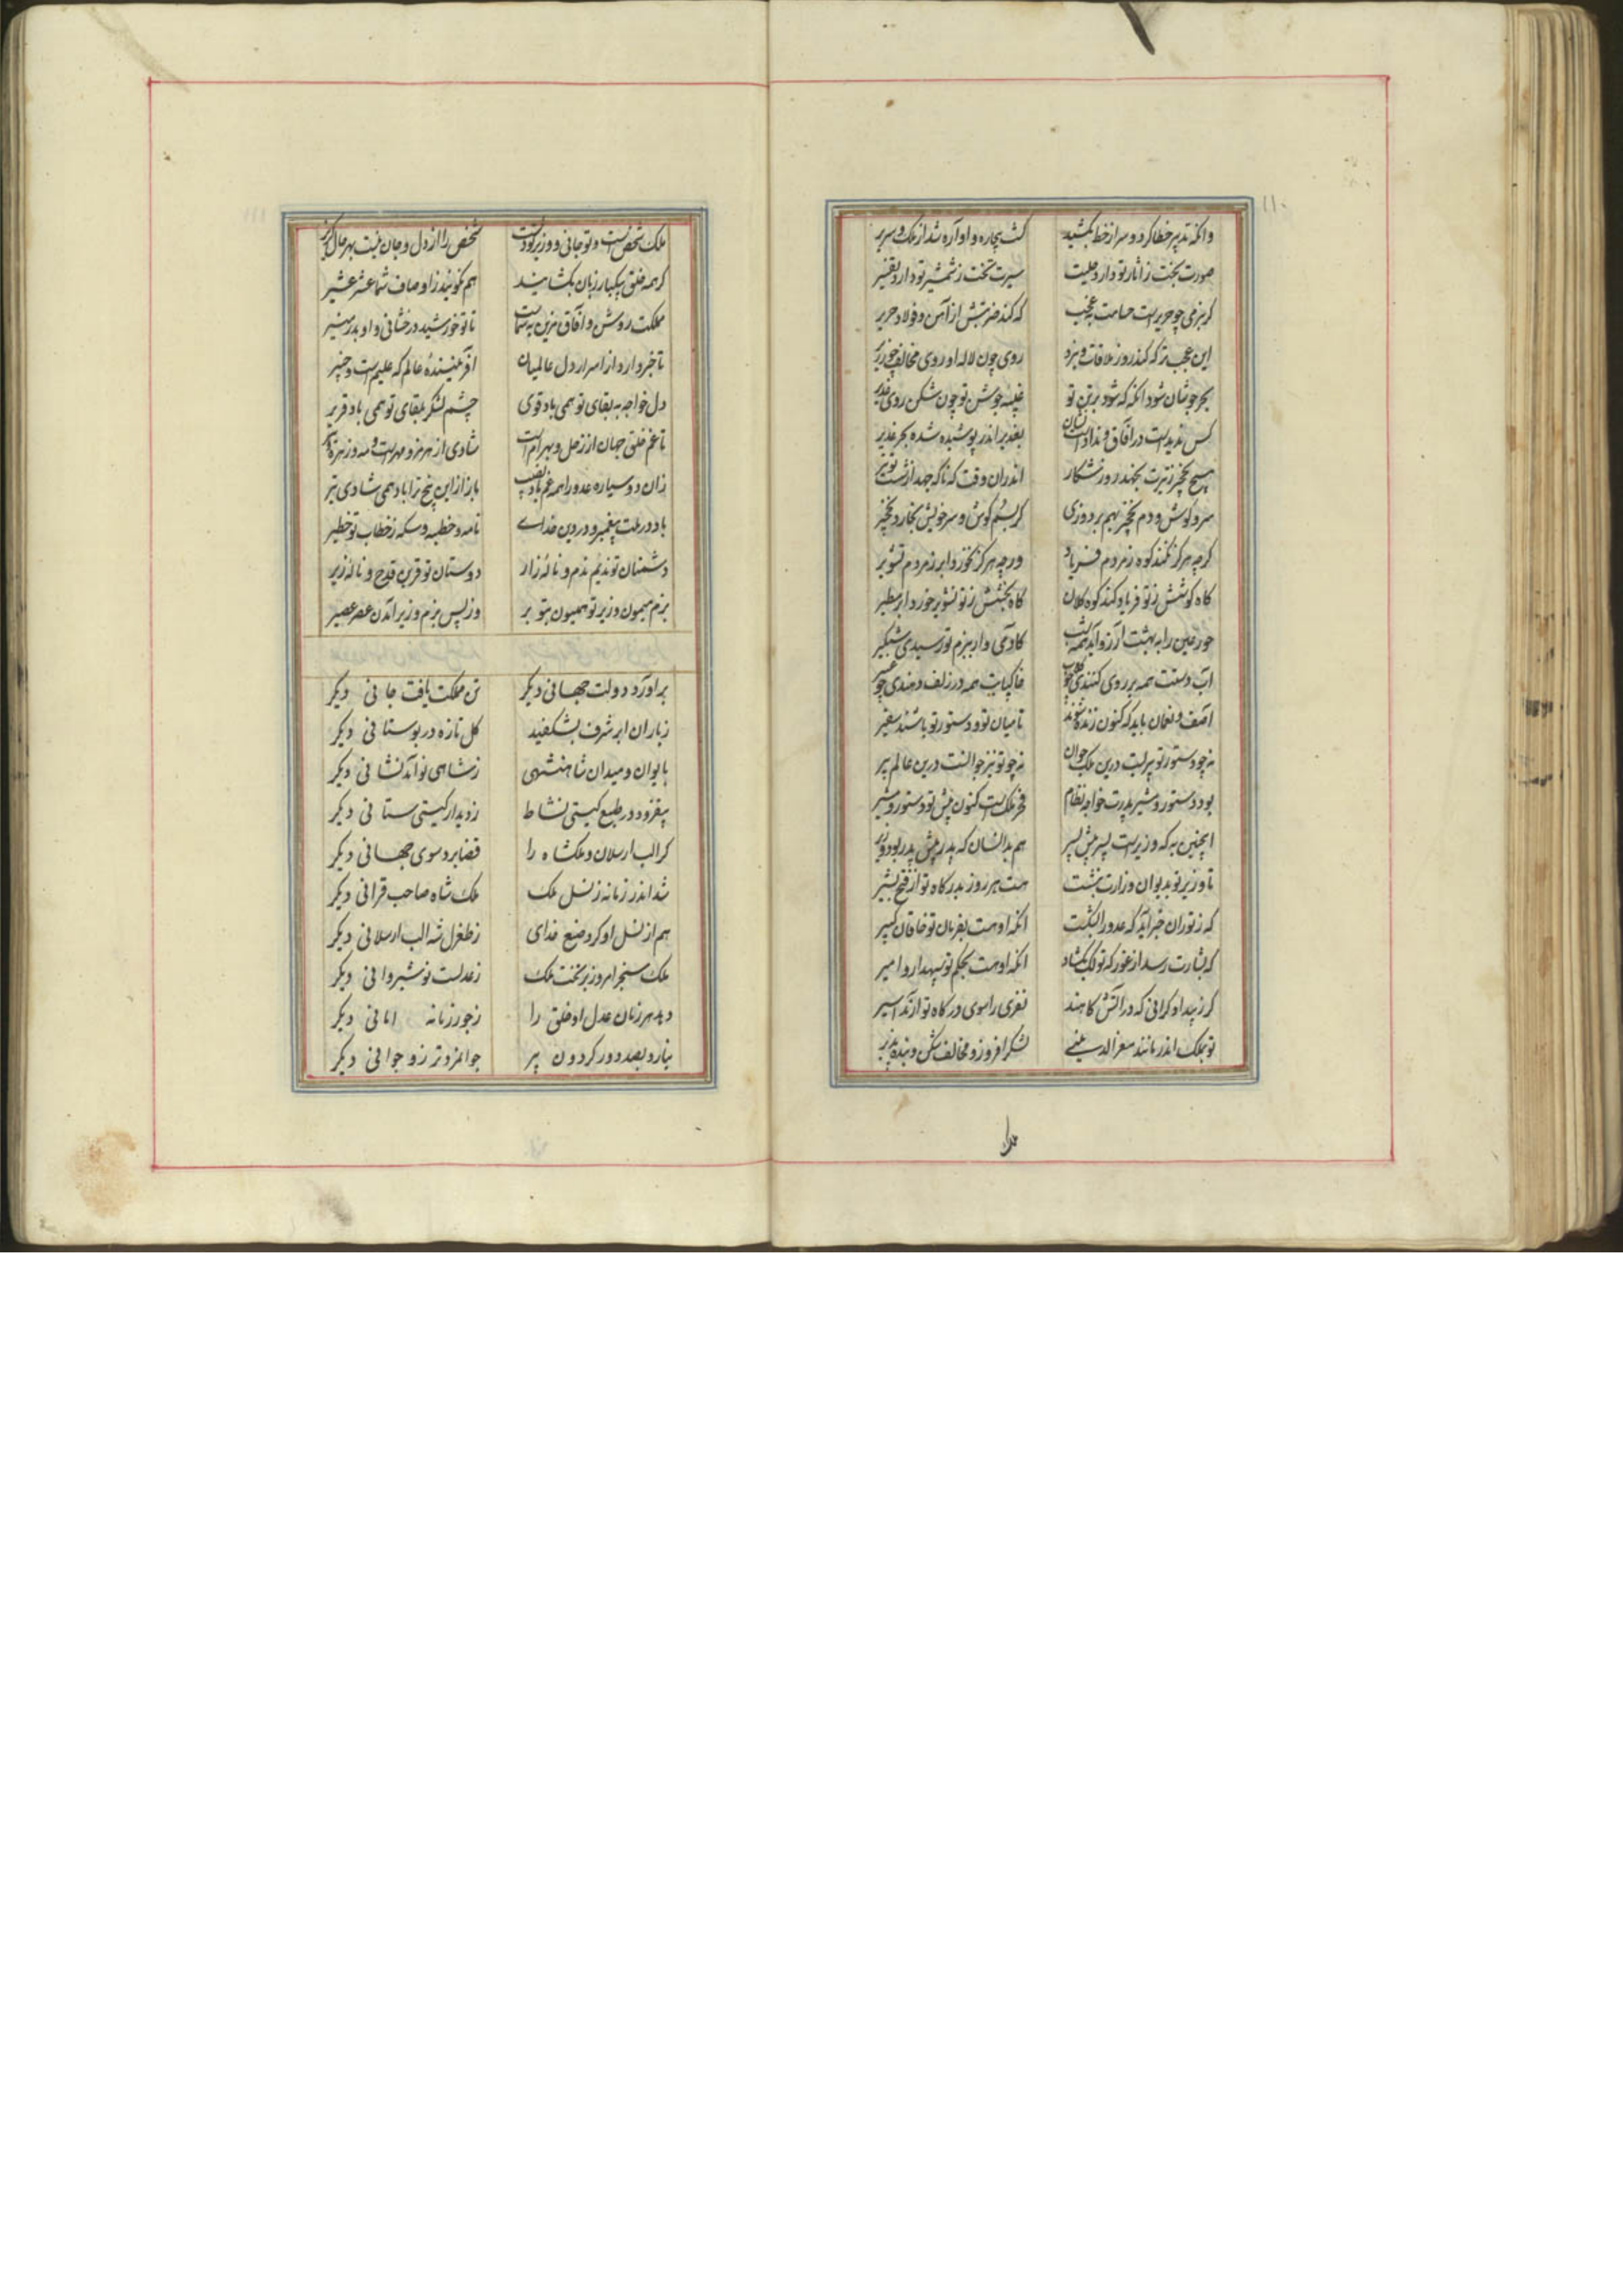 وانکه تدبیر خطا کرد و سر از خط بکشید کشت بیچاره و اواره شد از ملک و سریر
صورت بخت ز اثار تو دارد حلیت سیرت تخت ز شمشیر تو دارد تفسیر
کر بنرمی چو حریر است حسامت چه عجب که کند ضربتش از آهن و فولاد حریر
این عجب تر که کند روز ملاقات و نبرد روی چون لاله او روی مخالف چو زریر
بحر جوشان شود انکه که شود برتن تو غیبه جوشن تو چون شکن روی غدیر
کس ندیدست در آفاق و نداد است نشان بغدیر اندر پوشیده شده بحر غدیر
هیچ نخجیر ز تیرت نجهد روز شکار اندران وقت که ناکه جهد از شست تو تیر
سر و کوش و دم نخجیر بهم بردوزی کر بسم کوش و سر خویش بخارد نخجیر
کرچه هرکز نکند کوه ز مردم فریاد ورچه هرکز نخورد ابر ز مردم تشویر
کاه کوشش ز تو فریاد کند کوه کلان کاه بخشش ز تو تشویر خورد ابر مطیر
حور عین را به بهشت آرزو آید همه شب کادمی وار ببزم تو رسیدی شبکیر
آب دستت همه بر روی کنندی چو خاکپایت همه در زلف دمندی چو عبیر
آصف و لقمان باید که کنون زنده شوند تا میان تو و دستور تو باشند سفیر
نه چو دستور تو پیریست درین ملک جوان نه چو تو نیز جوانست درین عالم پیر
بود دستور و مشیر پدرت خواجه نظام فخر ملکست کنون پیش تو دستور و مشیر
اینچنین به که وزیرست پسر پیش پسر هم بدانسان که پدر پیش پدر بود وزیر
تا وزیر تو بدیوان وزارت بنشست هست هر روز بدرکاه تو از فتح بشیر
که ز توران خبر آید که عدو را بشکست انکه او هست بفرمان تو خاقان کبیر
که بشارت رسد از غور که لک بکشاد انکه او هست بحکم تو سپهدار و امیر
کر ز بیداد کرانی که در آتش کاهند نفری را سوی درکاه تو آرند اسیر
تو بملک اندر مانند معز الدینی لشکر افروز و مخالف شکن و بنده پذیر
ملک
ملک شخص است و تو جانی و وزیر تو دلست شخص را از دل و جان نیست بهر حال کزیر
کر همه خلق بیکبار زبان بکشایند هم نکویند ز اوصاف شما عشر عشیر
مملکت روشن و آفاق مزین به شماست تا تو خورشید درخشانی و او بدر منیر
تا خبر دارد از اسرار دل عالمیان آفریننده عالم که علیم است و خبیر
دل خواجه به بقای تو همی باد قوی چشم لشکر بلقای تو همی باد قریر
تا غم خلق جهان از زحل و بهرام است شادی از هرمز و مهرست و مه و زهره و تیر
زان دو سیاره عدو را همه غم باد نصیب باز ازین پنج ترا باد همی شادی تیر
باد در ملت پیغمبر و در دین خدای نامه و خطبه و سکه ز خطاب تو خطیر
دشمنان تو ندیم ندم و ناله زار دوستان تو قرین قدح و ناله زیر
بزم میمون وزیر تو همیون بتو بر وز پس بزم وزیر آمدن عصر عصیر
براورد دولت جهانی دیکر تن مملکت یافت جانی دیکر
ز باران ابر شرف بشکفید کل تازه در بوستانی دیکر
بایوان و میدان شاهنشهی ز شاهی نو آمد نشانی دیکر
بیفزود در طبع کیتی نشاط ز دیدار کیتی ستانی دیکر
کر الب ارسلان و ملکشاه را قضا برد سوی جهانی دیکر
شد اندر زمانه ز نسل ملک ملک شاه صاحب قرانی دیکر
هم از نسل او کرد صنع خدای ز طغرل شه الب ارسلانی دیکر
ملک سنجر امروز بر تخت ملک ز عدلست نوشیروانی دیکر
دهد هر زمان عدل او خلق را ز جور زمانه امانی دیکر
نیارد بصد دور کردون پیر جوانمردتر زو جوانی دیکر